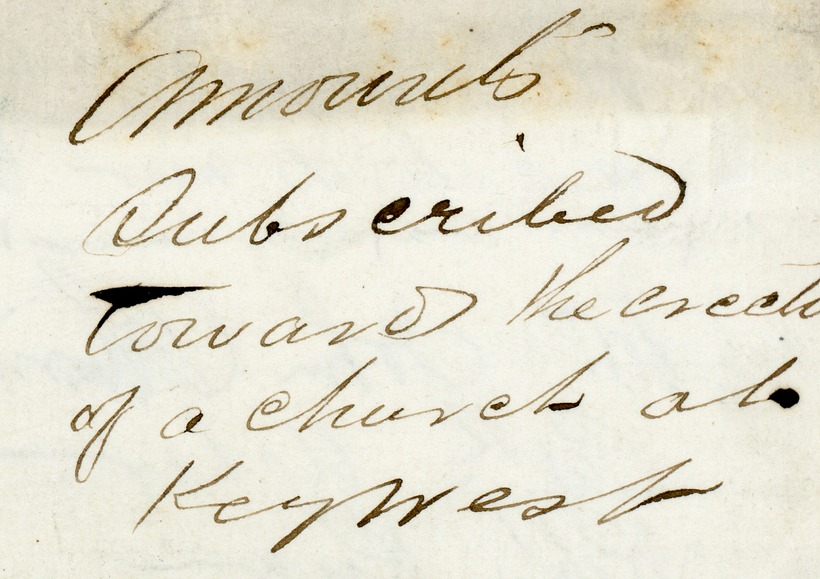 Amounts
Subscribed
Toward the erecti
of a church at
Key West